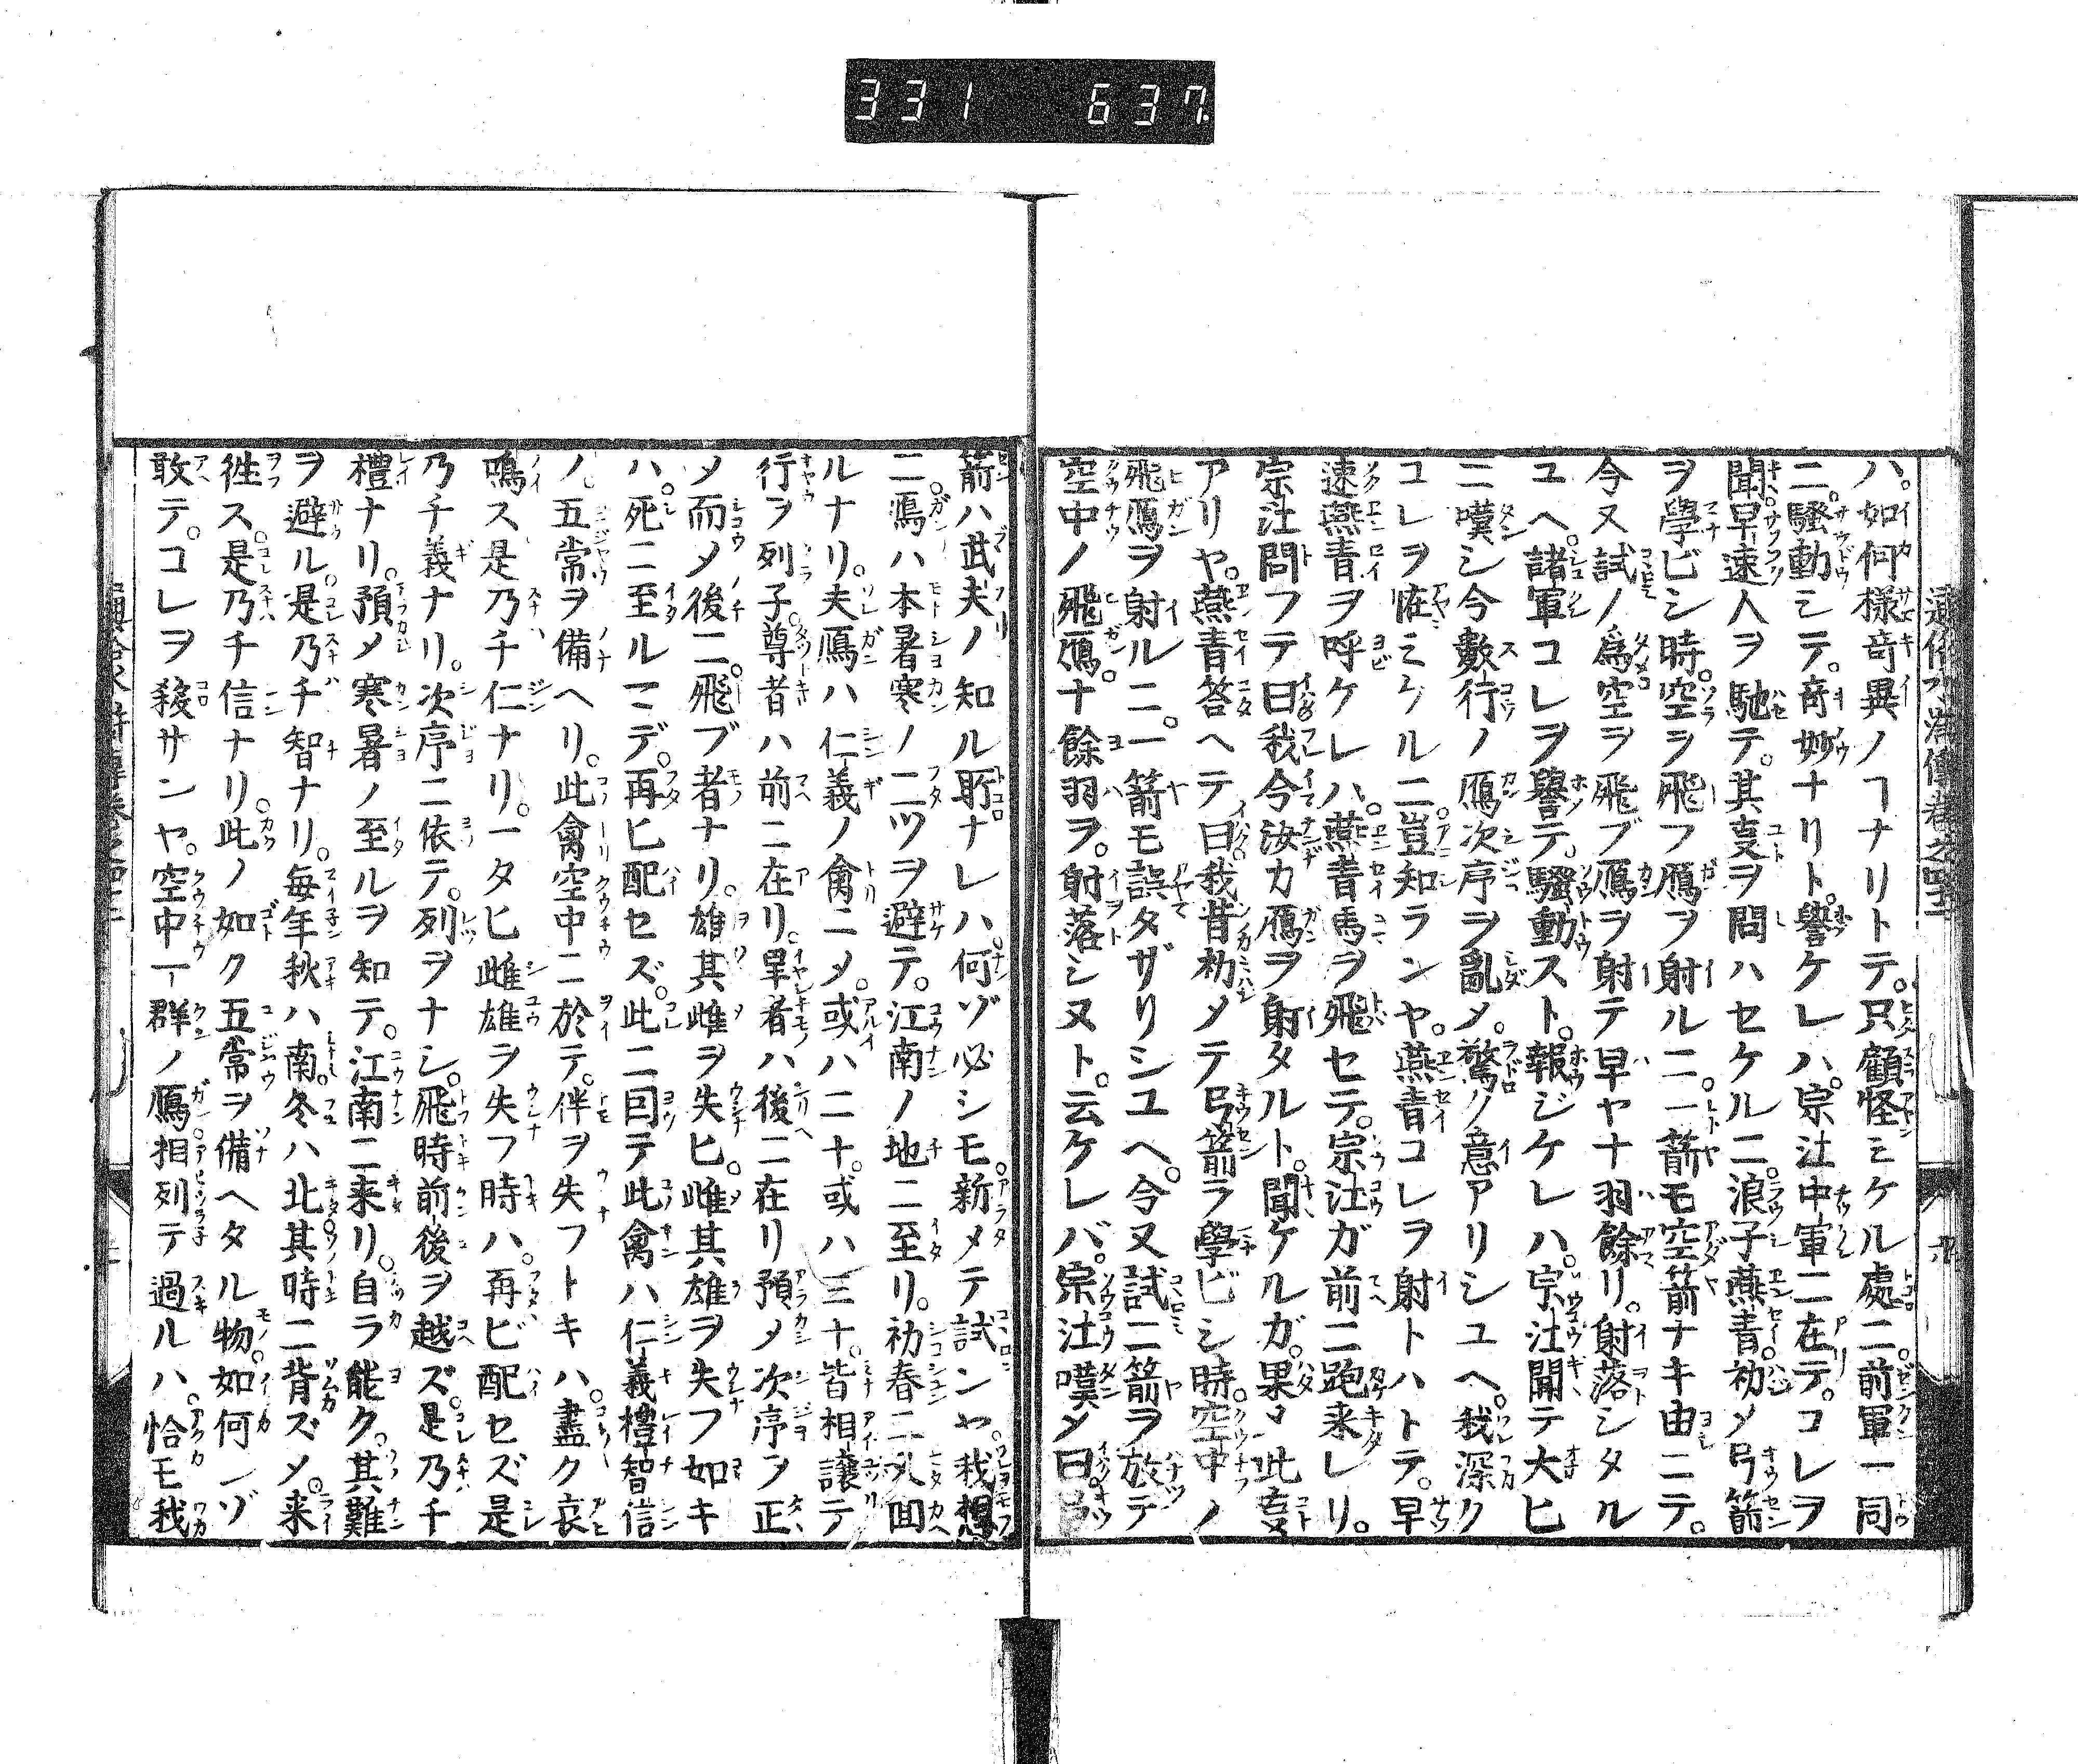 331 637
ハ。如何様奇異ノヿナリトテ。只顧怪ミケル處ニ。前軍一同
ニ騒動シテ。奇妙ナリト。譽ケレハ。宗江中軍ニ在テ。コレヲ
聞。早速人ヲ馳テ。其叓ヲ問ハセケルニ。浪子燕青初メ弓箭
ヲ學ビシ時。空ヲ飛フ鴈ヲ射ルニ。一箭モ空箭ナキ由ニテ。
今又試ノ爲空ヲ飛ブ鴈ヲ射テ早ヤ十羽餘リ。射落シタル
ユヘ。諸軍コレヲ譽テ。騒動スト。報ジケレハ。宗江聞テ大ヒ
ニ嘆シ今數行ノ鴈次序ヲ亂メ。驚ノ意アリシユヘ。我深ク
コレヲ恠ミケルニ。豈知ランヤ。燕青コレヲ射トハトテ。早
速燕青ヲ呼ケレハ。燕青馬ヲ飛セテ。宗江ガ前ニ跑来レリ。
宗江問フテ曰我今汝カ鴈ヲ射タルト。聞ケルガ。果〆此叓
アリヤ。燕青答ヘテ曰我昔初メテ弓箭ヲ學ビシ時。空中ノ
飛鴈ヲ射ルニ。一箭モ誤タザリシユヘ。今又試ニ箭ヲ放テ
空中ノ飛鴈。十餘羽ヲ。射落シヌト。云ケレバ。宗江嘆〆曰。弓
箭ハ武夫ノ知ル所ナレハ何ゾ必シモ。新メテ試ンヤ我想
ニ。鴈ハ本暑寒ノ二ツヲ避テ。江南ノ地ニ至リ。初春ニ又回
ルナリ。夫鴈ハ仁義ノ禽ニ〆。或ハ二十。或ハ三十。皆相譲テ
行ヲ列子。尊者ハ前ニ在リ。卑者ハ後ニ在リ預メ次序ヲ正
〆而〆後ニ。飛ブ者ナリ。雄其雌ヲ失ヒ。雌其雄ヲ失フ如キ
ハ。死ニ至ルマデ。再ヒ配セズ。此ニ因テ此禽ハ仁義禮智信
ノ。五常ヲ備ヘリ。此禽空中ニ於テ。伴ヲ失フトキハ。盡ク哀
鳴ス是乃チ仁ナリ。一タヒ雌雄ヲ失フ時ハ。再ビ配セズ是
乃チ義ナリ。次序ニ依テ。列ヲナシ。飛時前後ヲ越ズ。是乃チ
禮ナリ。預メ寒暑ノ至ルヲ知テ。江南ニ来リ。自ラ能ク。其難
ヲ避ル。是乃チ智ナリ。毎年秋ハ南。冬ハ北其時ニ背ズ〆。来
徃ス。是乃チ信ナリ。此ノ如ク五常ヲ備ヘタル物。如何ンゾ
敢テ。コレヲ殺サンヤ。空中一群ノ鴈。相列テ過ルハ。恰モ我